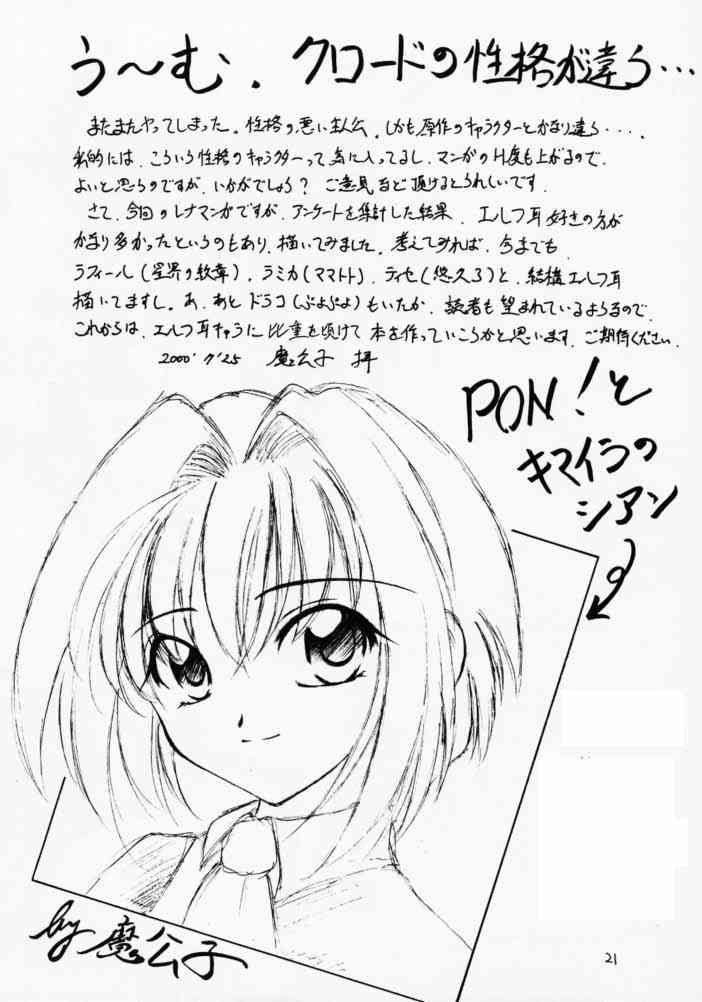 う〜む．クロードの性格が違う…
またまたやってしまった。性格の悪い主人公。しかも原作のキャラクターとかなり違う・・・・。
私的には、こういう性格のキャラクターって気に入ってるし、マンガのH度も上がるので
よいと思うのですが、いかがでしょう？ ご意見など頂けるとうれしいです。
さて、今回のレナマンガですが、アンケートを集計した結果、エルフ耳好きの方が
かなり多かったというのもあり、描いてみました。考えてみれば、今までも
ラフィール（星界の紋章）、ラミカ（ママトト）、ティセ（悠久3）と、結構エルフ耳
描いてますし。あ、あと ドラコ（ぷよぷよ）もいたか。読者も望まれているようなので、
これからは、エルフ耳キャラに比重を傾けて 本を作っていこうかと思います。ご期待ください。
2000 7/25 魔公子 拝
PON！と
キマイラの
シアン
by 魔公子
21